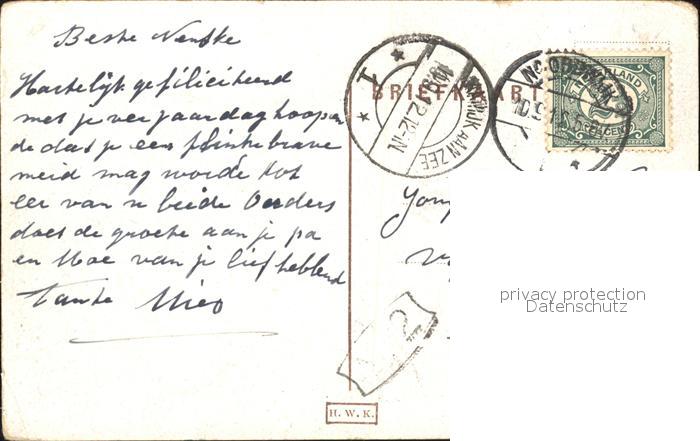 Beste
Hartelijk gefiliciteerd
met je verjaardag hoopen
de dat je een flinke brave
meid mag worde tot
eer van u beide Ouders
doet de groete aan je pa
en Moe van je liefhebbend
Tante Mien
BRIEFKAART
T
12-1N
WIJK AAN ZEE
NEDERLAND
2½ CENT
privacy protection
Datenschutz
2
H. W. K.